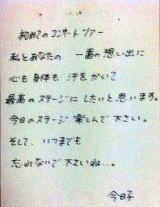 初めてのコンサートツアー
私とあなたの 一番の想い出に
心も身体も 汗をかいて
最高のステージに したいと思います。
今日のステージ 楽しんで下さい。
そして、いつまでも
忘れないで下さいね…。
今日子